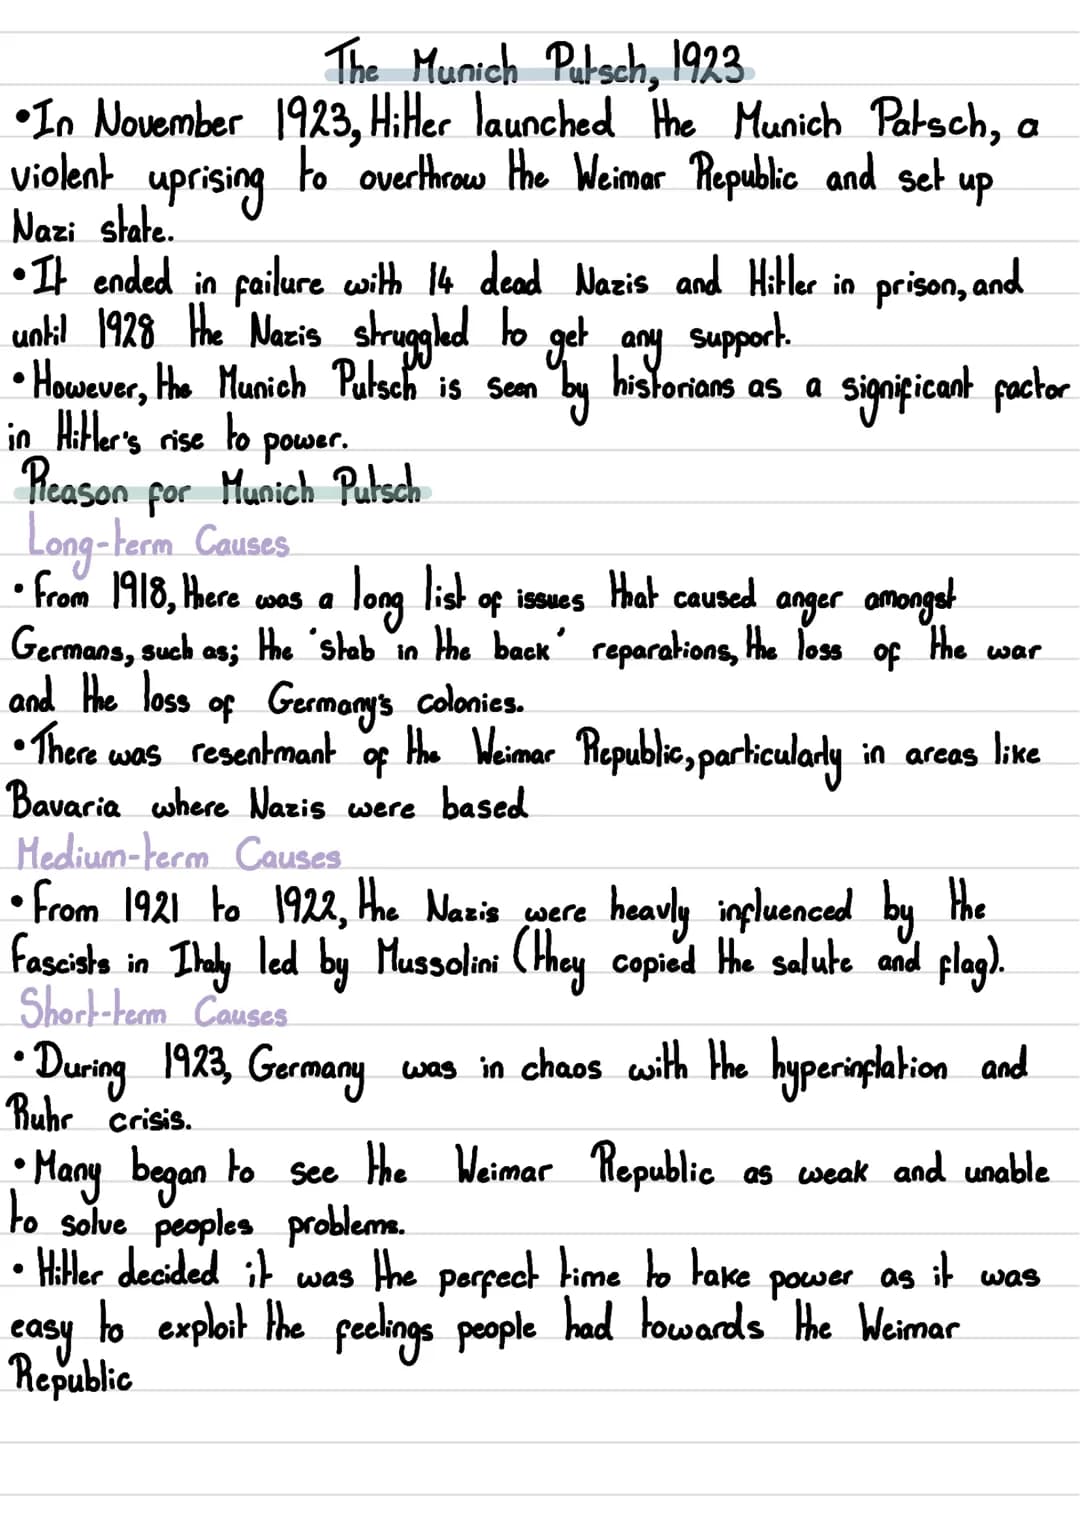 The Munich Putsch, 1923
•In November 1923, Hitler launched the Munich Patsch, a
violent uprising to overthrow the Weimar Republic and set up
Nazi state.
•It ended in failure with 14 dead Nazis and Hitler in prison, and
until 1928 the Nazis struggled to get any support.
•However, the Munich Putsch is seen by historians as a significant factor
in Hitler's rise to power.
Reason for Munich Putsch
Long-term Causes
•From 1918, there was a long list of issues that caused anger amongst
Germans, such as; the 'stab in the back' reparations, the loss of the war
and the loss of Germany's colonies.
•There was resentmant of the Weimar Republic, particularly in areas like
Bavaria where Nazis were based
Medium-term Causes
•From 1921 to 1922, the Nazis were heavly influenced by the
Fascists in Italy led by Mussolini (they copied the salute and flag).
Short-term Causes
•During 1923, Germany was in chaos with the hyperinflation and
Ruhr crisis.
•Many began to see the Weimar Republic as weak and unable
to solve peoples problems.
•Hitler decided it was the perfect time to take power as it was
easy to exploit the feelings people had towards the Weimar
Republic